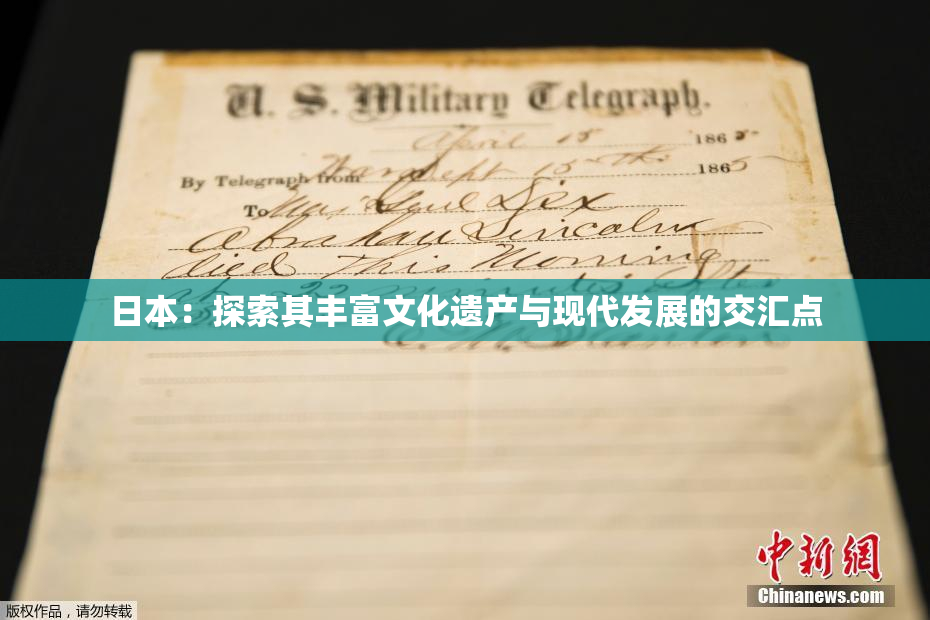 U. S. Military Telegraph.
April 15 1865
By Telegraph from War Dept 15th 1865
To Maj Genl Dix
Abraham Lincoln
died This Morning
22 minutes after
日本：探索其丰富文化遗产与现代发展的交汇点
中新網
Chinanews.com
版权作品，请勿转载